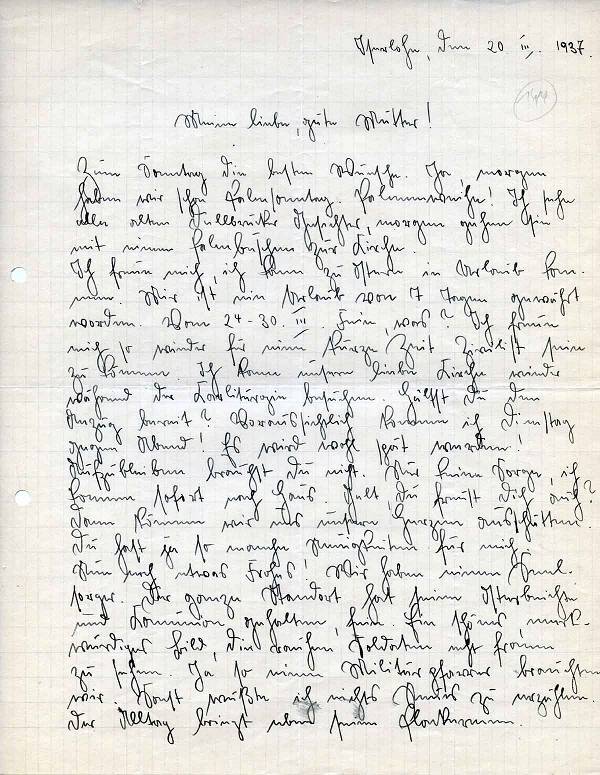 Iserlohn, den 20. III. 1937.
144
Meine liebe, gute Mutter!
Zum Sonntag die besten Wünsche. Ja, morgen
haben wir schon Palmsonntag. Palmenweihe! Ich sehe
alle alten Gesichter, morgen gehen sie
mit einem Palmbuschen zur Kirche.
Ich freue mich, ich kann zu Ostern in Urlaub kom-
men. Mir ist ein Urlaub von 7 Tagen gewährt
worden. Vom 24-30. III. Fein, was? Ich freue
mich so wieder für eine kurze Zeit Zivilist sein
zu können. Ich kann unsere liebe Kirche wieder
während der Karliturgie besuchen. Hälst Du den
Anzug bereit? Voraussichlich komme ich Dienstag
gegen Abend! Es wird wohl spät werden!
Aufzubleiben brauchst Du nicht. Nur keine Sorge, ich
komme sofort nach Haus. Gelt, Du freust Dich auch?
Dann können wir uns unsere Herzen ausschütten.
Du hast ja so manche Neuigkeiten für mich.
Nun noch etwas Frohes! Wir haben einen Seel-
sorger. Der ganze Standort hat seine Osterbeichte
und Kommunion gehalten, fein. Ein schönes, merk-
würdiges Bild, die rauhen Soldaten echt fromm
zu sehen. Ja so einen Militärpfarrer brauchten
wir. Sonst wüßte ich nichts Neues zu erzählen.
Der Alltag bringt eben seine